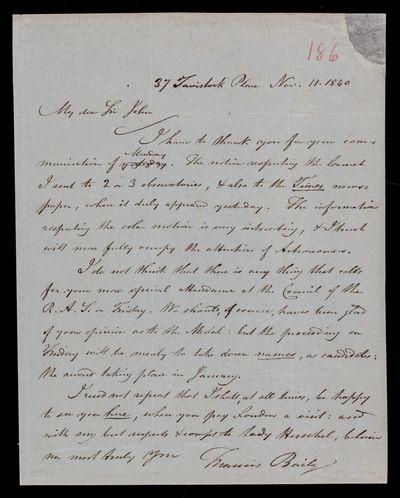 186
37 Tavistock Place Nov. 11. 1840
My dear Sir John
I have to thank you for your com=
munication of Monday. The notice respecting the Comet
I sent to 2 or 3 observatories, & also to the Times news=
paper, where it duly appeared yesterday. The information
respecting the solar motion is very interesting, & I trust
will now fully occupy the attention of Astronomers.
I do not think that there is any thing that calls
for your more special attendance at the Council of the
R.A.S. on Friday. We should, of course, have been glad
of your opinion as to the Medal: but the proceeding on
Friday will be merely to take down names, as candidates:
the award taking place in January.
I need not repeat that I shall, at all times, be happy
to see you here, when you pay London a visit: and
with my best respects & comps to Lady Herschel, believe
me most truly Yours
Francis Baily